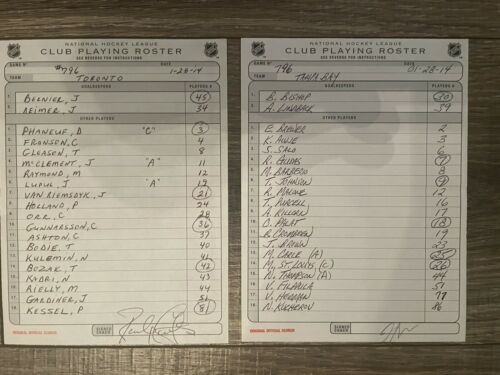 NATIONAL HOCKEY LEAGUE
CLUB PLAYING ROSTER
SEE REVERSE FOR INSTRUCTIONS
GAME Nº #796 1-28-14
TEAM TORONTO
GOALKEEPERS PLAYER #
1. BERNIER, J 45
2. REIMER, J 34
OTHER PLAYERS PLAYER #
1. PHANEUF, D "C" 3
2. FRANSON, C 4
3. GLEASON, T 8
4. McCLEMENT, J "A" 11
5. RAYMOND, M 12
6. LUPUL, J "A" 19
7. VAN RIEMSDYK, J 21
8. HOLLAND, P 24
9. ORR, C 28
10. GUNNARSSON, C 36
11. ASHTON, C 37
12. BODIE, T 40
13. KULEMIN, N 41
14. BOZAK, T 42
15. KADRI, N 43
16. RIELLY, M 44
17. GARDINER, J 51
18. KESSEL, P 81
ORIGINAL OFFICIAL SCORER
SIGNED COACH
NATIONAL HOCKEY LEAGUE
CLUB PLAYING ROSTER
SEE REVERSE FOR INSTRUCTIONS
GAME Nº 796 01-28-14
TEAM TAMPA BAY
GOALKEEPERS PLAYER #
1. B. BISHOP 30
2. A. LINDBACK 39
OTHER PLAYERS PLAYER #
1. E. BREWER 2
2. K. AULIE 3
3. S. SALO 6
4. R. GUDAS 7
5. M. BARBERIO 8
6. T. JOHNSON 9
7. R. MALONE 12
8. T. PURCELL 16
9. A. KILLORN 17
10. O. PALAT 18
11. B. CROMBEEN 19
12. J. BROWN 23
13. M. CARLE (A) 25
14. M. ST. LOUIS (C) 26
15. N. THOMPSON (A) 44
16. V. FILPPULA 51
17. V. HEDMAN 77
18. N. KUCHEROV 86
ORIGINAL OFFICIAL SCORER
SIGNED COACH